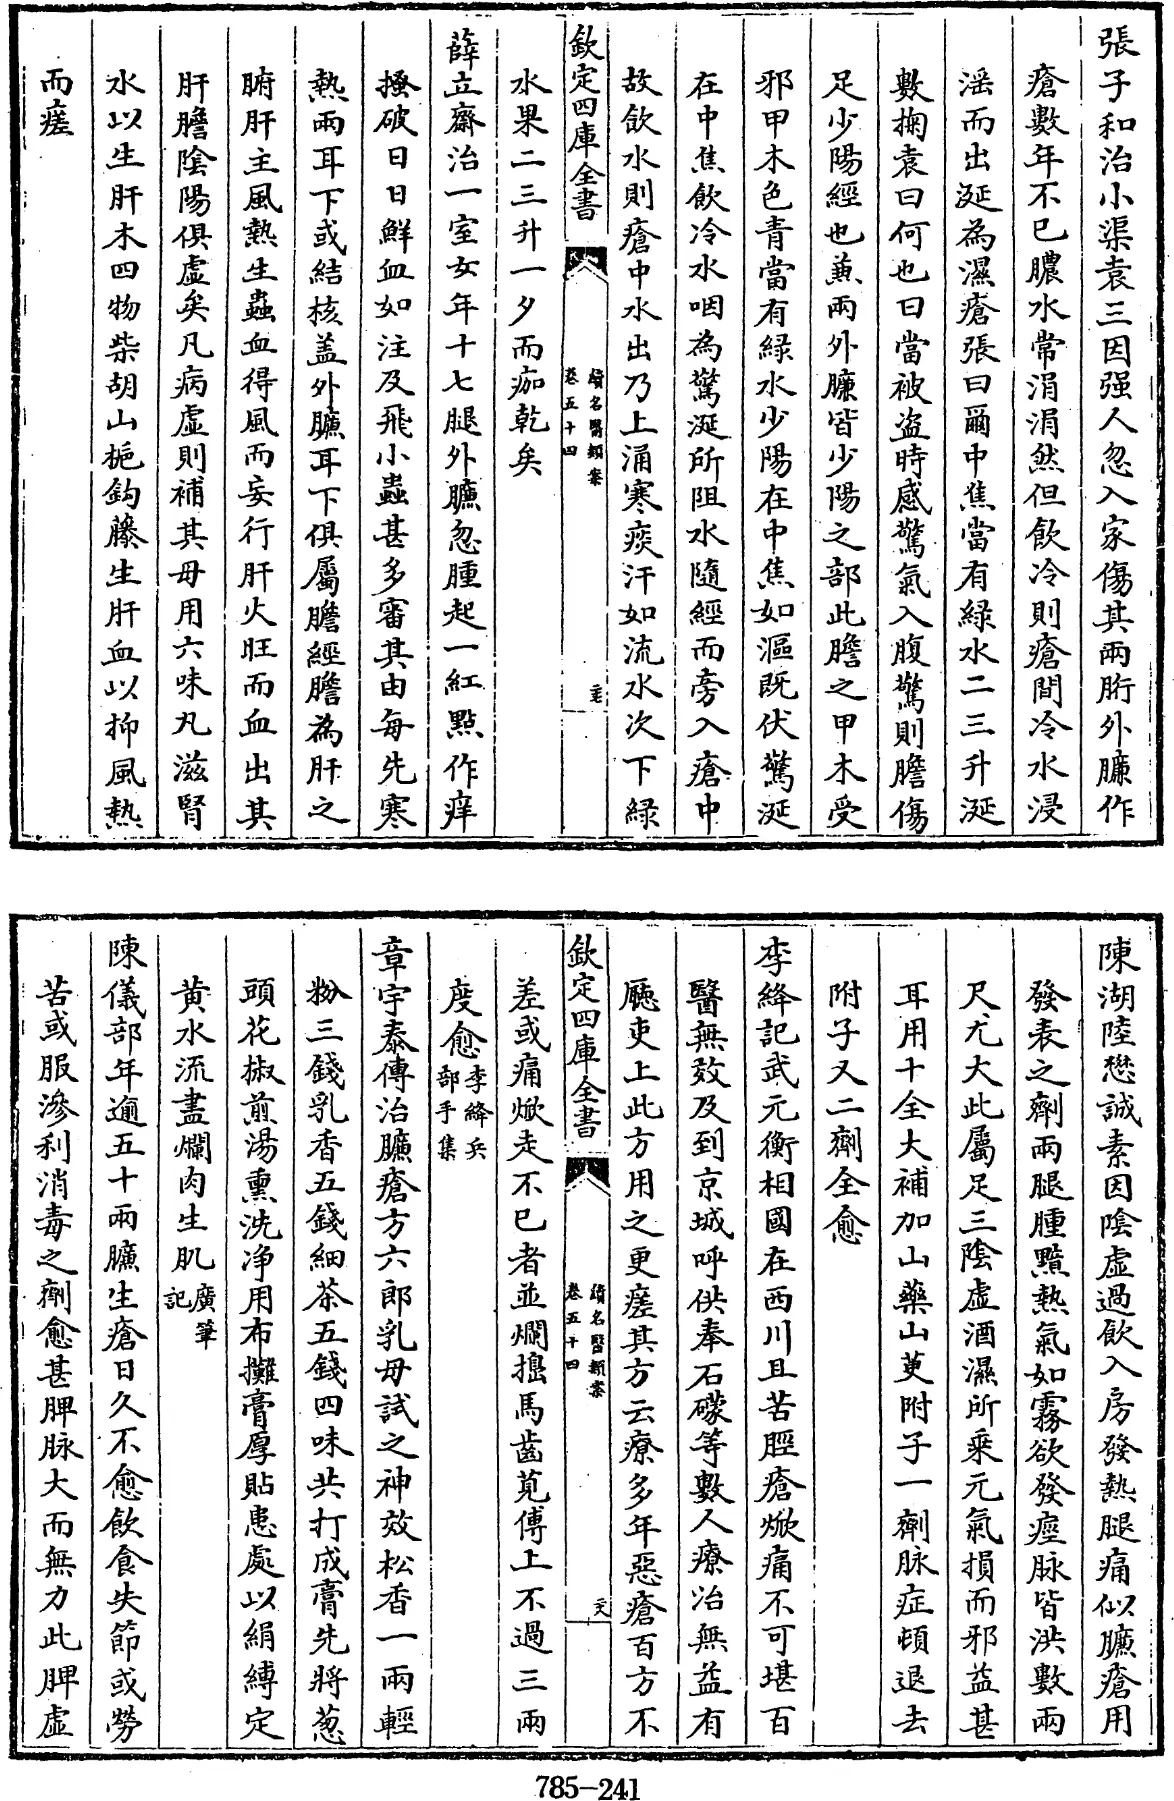 張子和治小渠袁三因强人忽入家傷其兩胻外臁作
瘡數年不已膿水常涓涓然但飲冷則瘡間冷水浸
淫而出涎為濕瘡張曰爾中焦當有綠水二三升涎
數掬袁曰何也曰當被盗時感驚氣入腹驚則膽傷
足少陽經也兼兩外臁皆少陽之部此膽之甲木受
邪甲木色青當有綠水少陽在中焦如漚既伏驚涎
在中焦飲冷水咽為驚涎所阻水隨經而旁入瘡中
故飲水則瘡中水出乃上涌寒痰汗如流水次下綠
欽定四庫全書
續名醫類案
卷五十四
水果二三升一夕而痂乾矣
薛立齋治一室女年十七腿外臁忽腫起一紅點作痒
搔破日日鮮血如注及飛小蟲甚多審其由每先寒
熱兩耳下或結核盖外臁耳下俱屬膽經膽為肝之
腑肝主風熱生蟲血得風而妄行肝火旺而血出其
肝膽陰陽俱虛矣凡病虛則補其母用六味丸滋腎
水以生肝木四物柴胡山梔鈎藤生肝血以抑風熱
而瘥
陳湖陸懋誠素因陰虛過飲入房發熱腿痛似臁瘡用
發表之劑兩腿腫黯熱氣如霧欲發痙脉皆洪數兩
尺尤大此屬足三陰虛酒濕所乘元氣損而邪益甚
耳用十全大補加山藥山萸附子一劑脉症頓退去
附子又二劑全愈
李絳記武元衡相國在西川且苦脛瘡焮痛不可堪百
醫無效及到京城呼供奉石礞等數人療治無益有
廳吏上此方用之更瘥其方云療多年惡瘡百方不
欽定四庫全書
續名醫類案
卷五十四
差或痛焮走不已者並爛搗馬齒莧傅上不過三兩
度愈李絳兵部手集
章宇泰傳治臁瘡方六郎乳母試之神效松香一兩輕
粉三錢乳香五錢細茶五錢四味共打成膏先將葱
頭花椒煎湯熏洗净用布攤膏厚貼患處以絹縛定
黄水流盡爛肉生肌廣筆記
陳儀部年逾五十兩臁生瘡日久不愈飲食失節或勞
苦或服滲利消毒之劑愈甚脾脉大而無力此脾虛
785-241